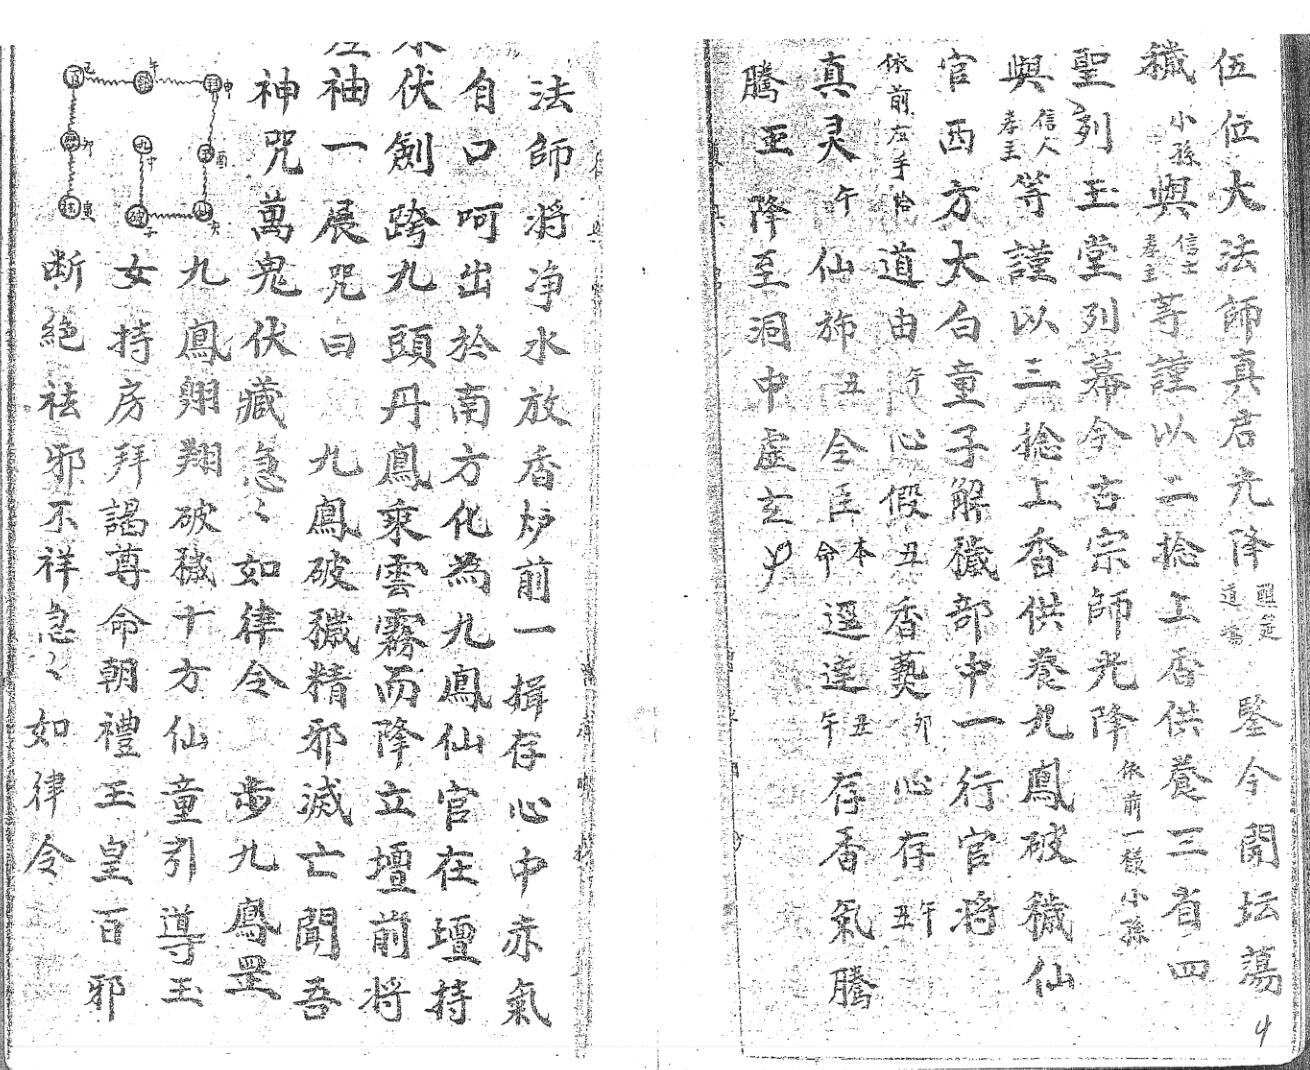 伍位大法師真君光降 鑒今開坛蕩
穢小孫與信士孝主等謹以二捻上香供養三省四
聖列玉堂列幕今古宗師光降依前一樣小孫
與信人孝主等謹以三捻上香供養九鳳破穢仙
官西方大白童子解穢部中一行官将
依前左手掐道由午心假丑香爇卯心存午丑
真灵午仙斾丑令臣本命逕達丑午存香氣騰
騰至降至洞中虛玄
法師将净水放香炉前一揖存心中赤氣
自口呵出於南方化為九鳳仙官在壇持
水伏劍跨九頭丹鳳乘雲霧而降立壇前将
袖一展咒曰 九鳳破穢精邪滅亡聞吾
神咒萬鬼伏藏急々如律令 步九鳳罡
九鳳翱翔破穢十方仙童引導玉
女持房拜謁尊命朝禮玉皇百邪
断絕祛邪不祥急々如律令
巳 午 申
卯 九 中 酉
寅 子
4